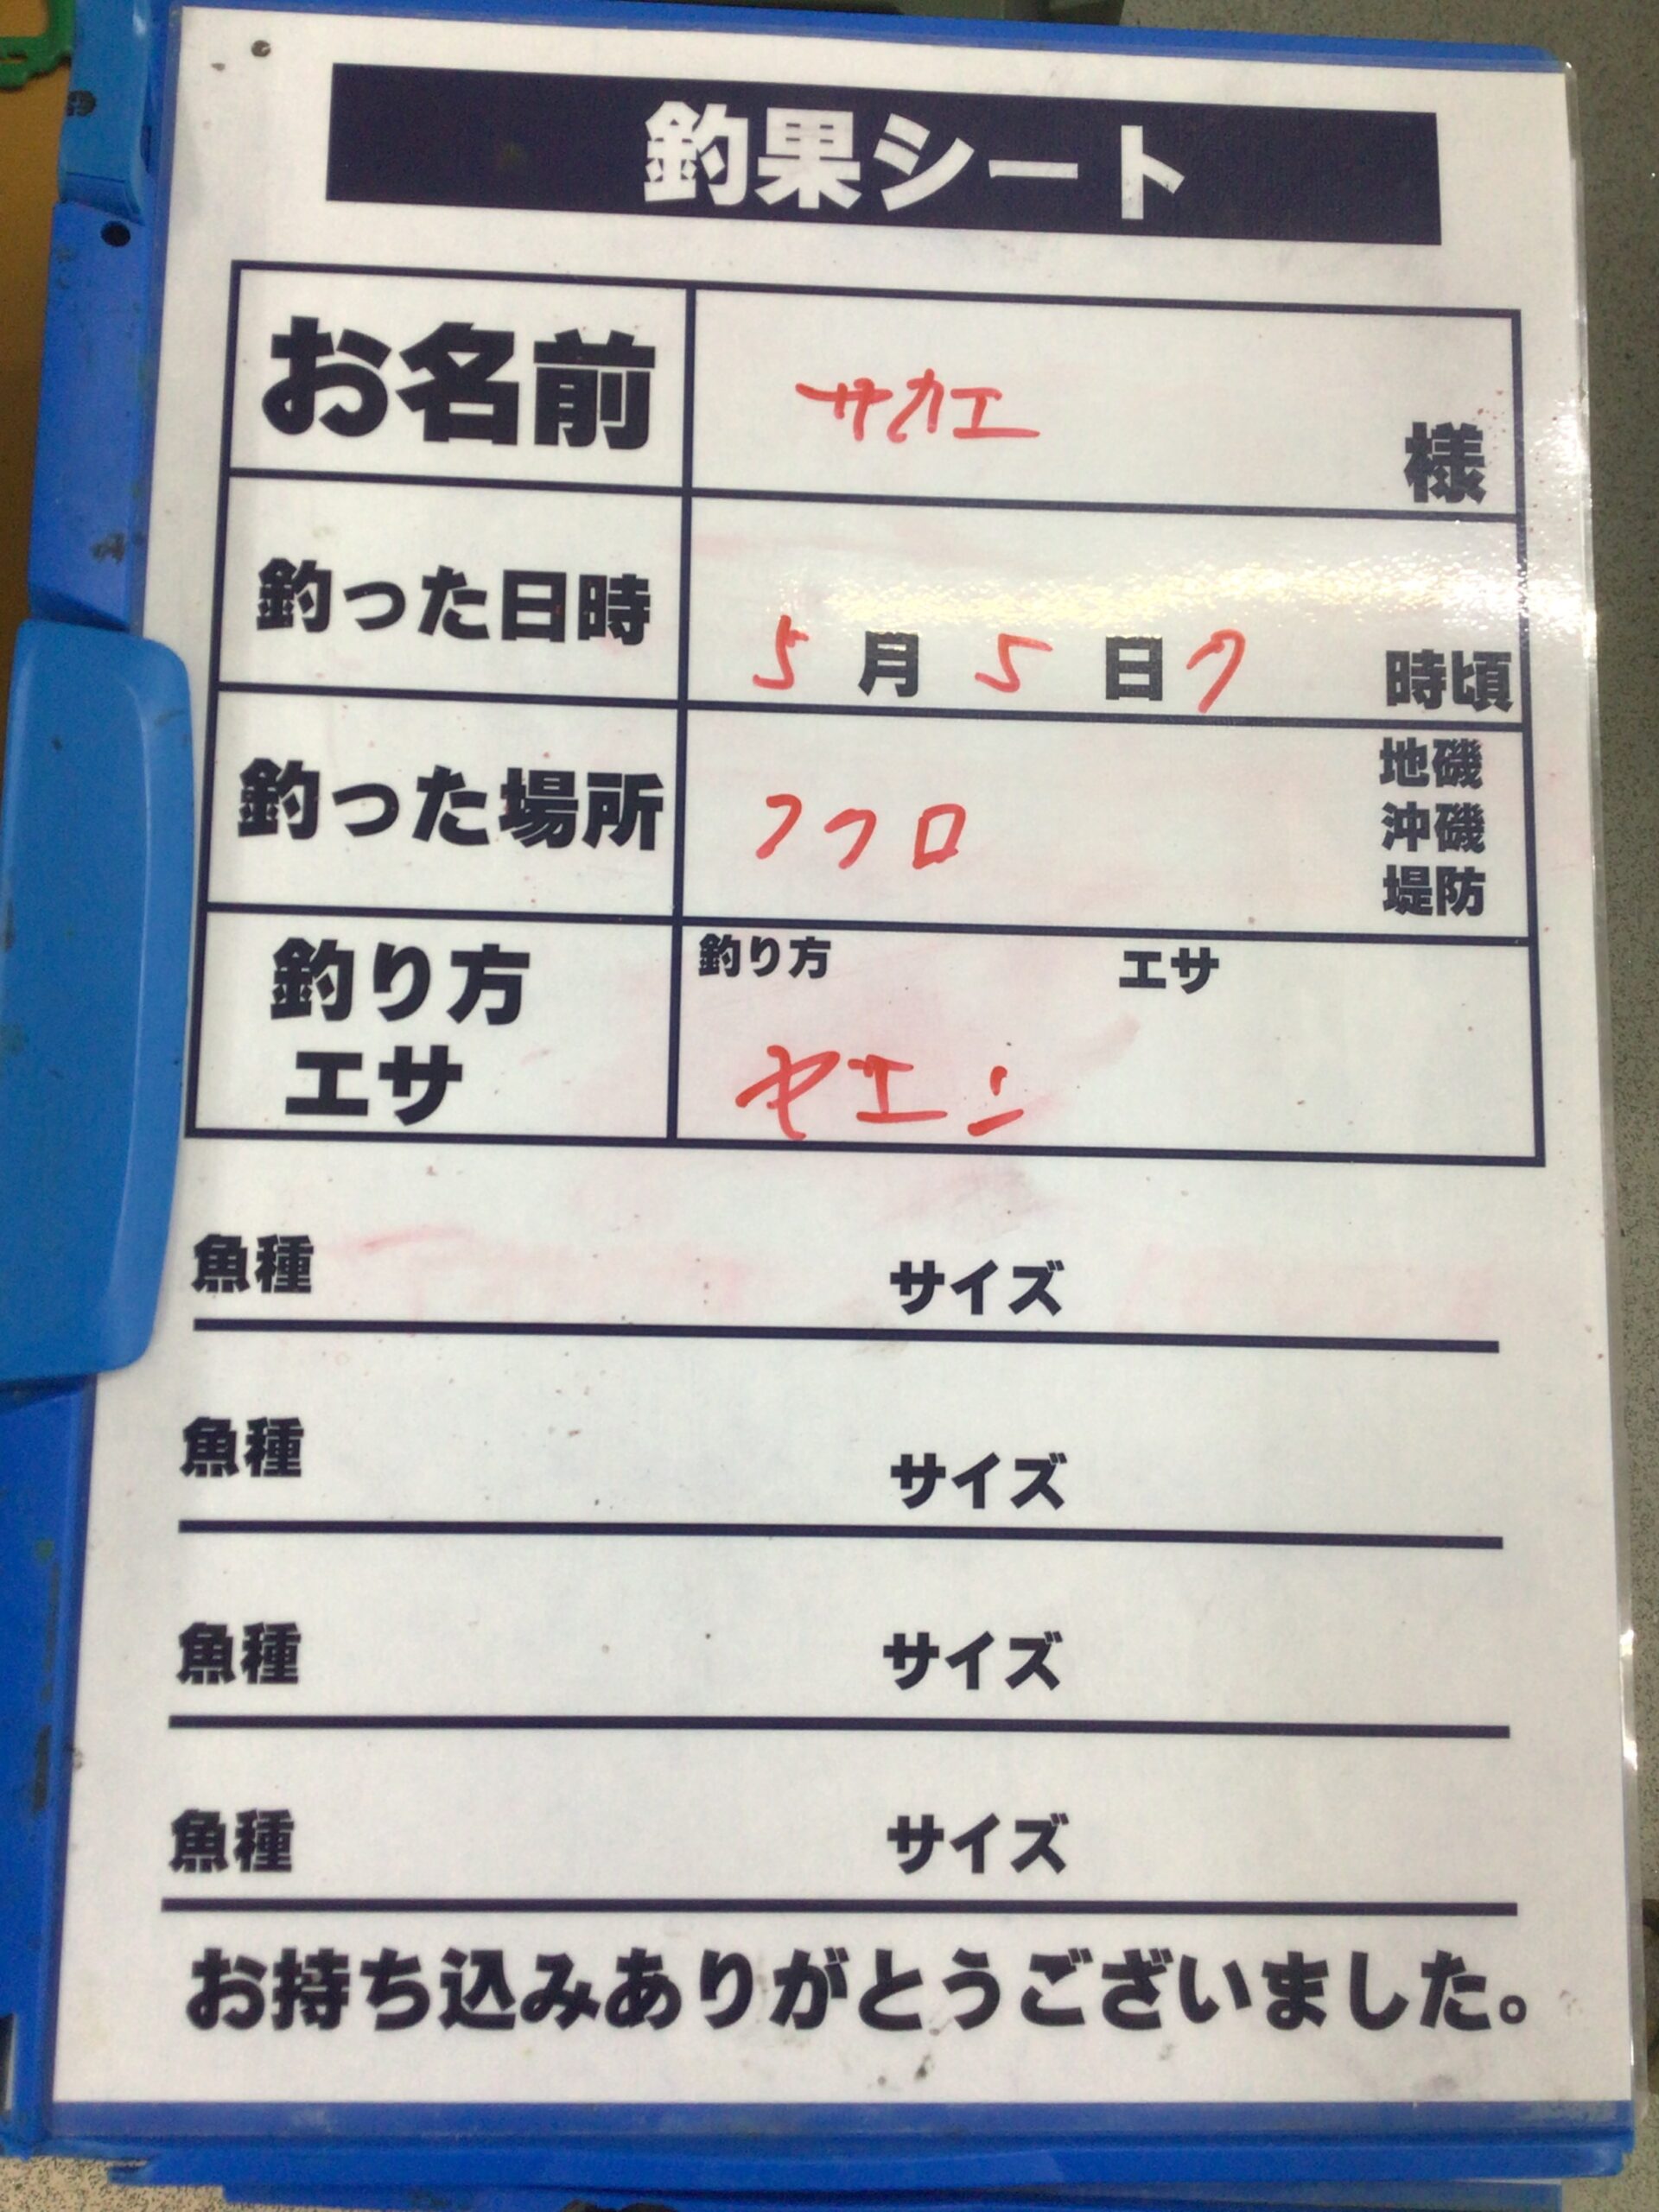 釣果シート
お名前 サカエ 様
釣った日時 5月5日7時頃
釣った場所 フクロ 地磯
沖磯
堤防
釣り方 釣り方 エサ
エサ ヤエン
魚種 サイズ
魚種 サイズ
魚種 サイズ
魚種 サイズ
お持ち込みありがとうございました。